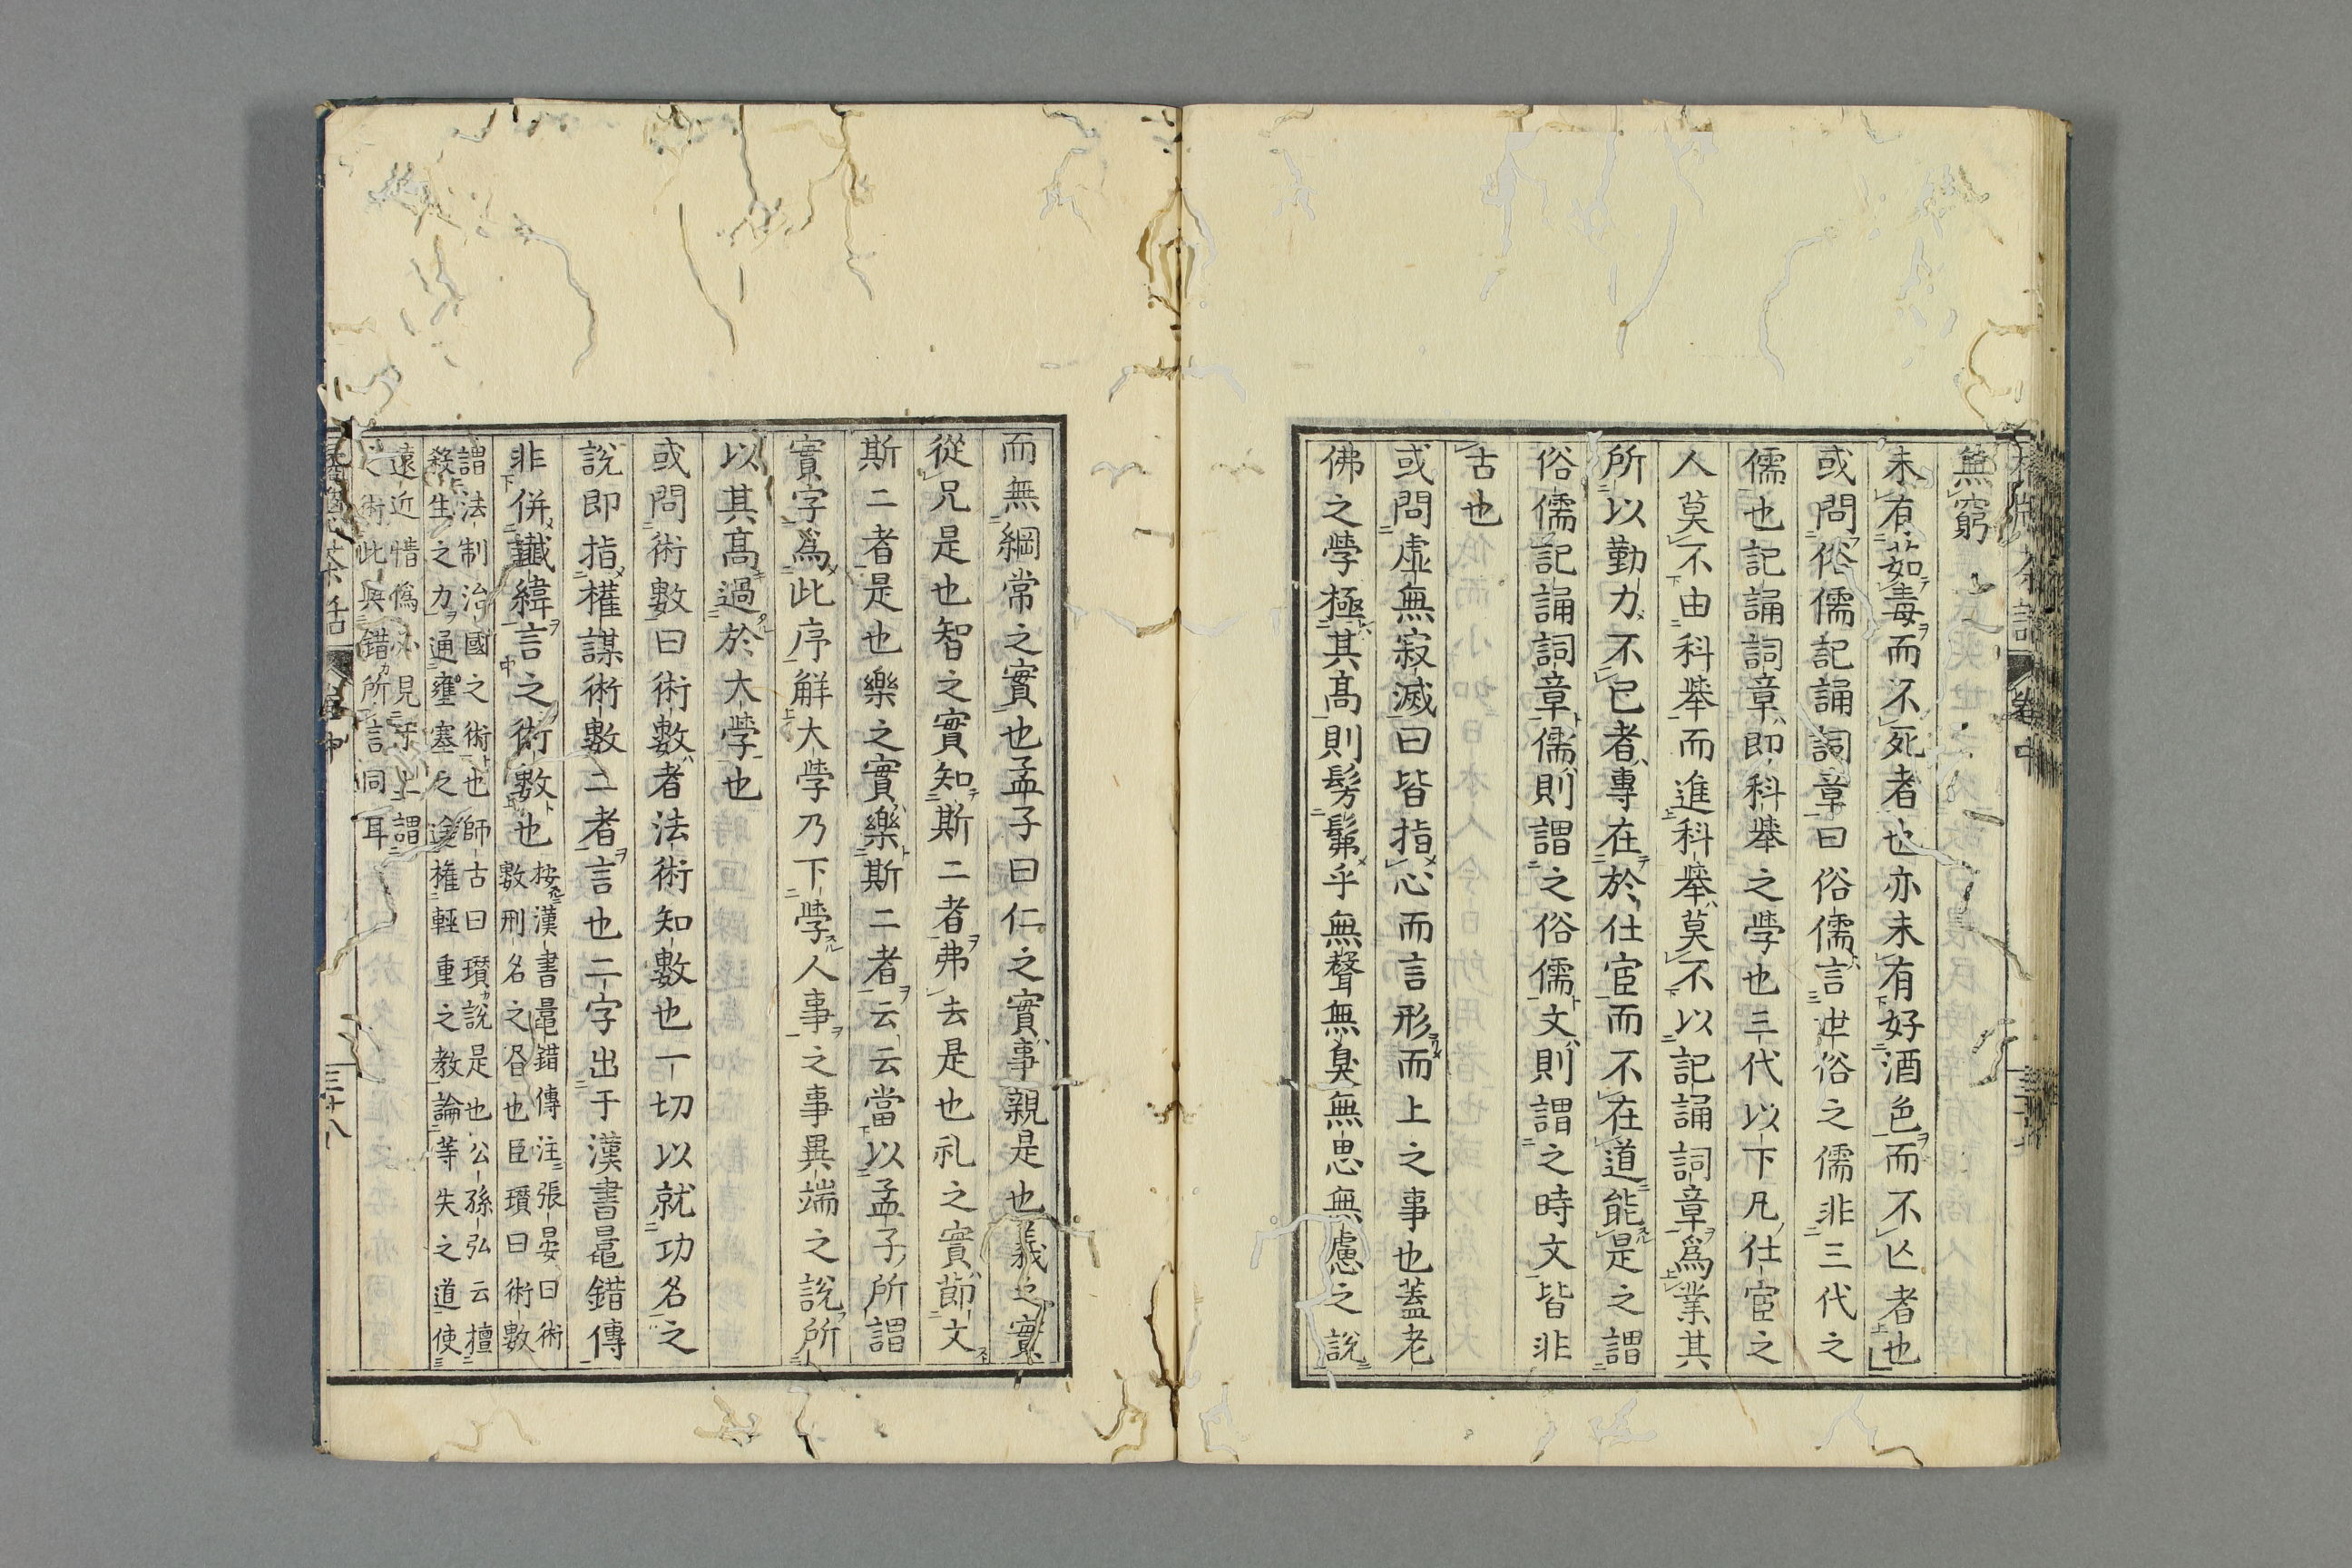 無窮
未有茹毒而不死者也亦未有好酒色而不亾者也
或問俗儒記誦詞章曰俗儒言世俗之儒非三代之
儒也記誦詞章即科擧之學也三代以下凡仕宦之
人莫不由科擧而進科擧莫不以記誦詞章爲業其
所以勤力不已者專在於仕宦而不在道能是之謂
俗儒記誦詞章儒則謂之俗儒文則謂之時文皆非
古也
或問虛無寂滅曰皆指心而言形而上之事也蓋老
佛之學極其高則髣髴乎無聲無臭無思無慮之說
而無綱常之實也孟子曰仁之實事親是也義之實
從兄是也智之實知斯二者弗去是也礼之實節文
斯二者是也樂之實樂斯二者云云當以孟子所謂
實字爲此序解大學乃下學人事之事異端之說所
以其高過於大學也
或問術數曰術數者法術知數也一切以就功名之
說即指權謀術數二者言也二字出于漢書鼂錯傳
非併讖緯言之術數也
按漢書鼂錯傳注張晏曰術
數刑名之書也臣瓚曰術數
謂法制治國之術也師古曰瓚說是也公孫弘云擅
殺生之力通壅塞之途権輕重之數論得失之道使
遠近情僞必見于上謂
之術此與錯所言同耳
卷中
三十八